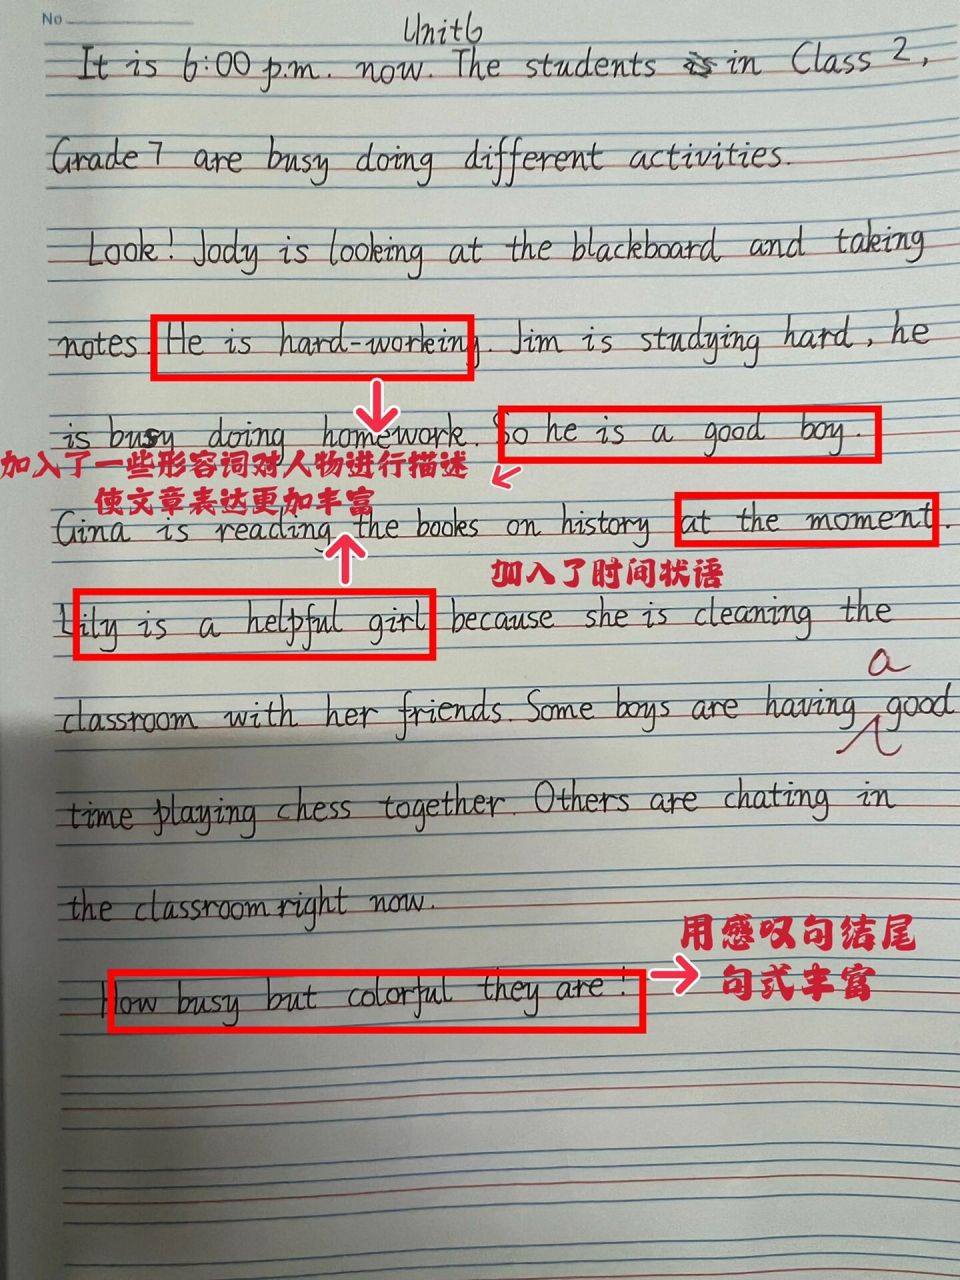 No
Unit6
It is 6:00 p.m. now. The students is in Class 2,
Grade 7 are busy doing different activities.
Look! Jody is looking at the blackboard and taking
notes. He is hard-working. Jim is studying hard, he
is busy doing homework. So he is a good boy.
加入了一些形容词对人物进行描述
使文章表达更加丰富
Gina is reading the books on history at the moment.
加入了时间状语
Lily is a helpful girl because she is cleaning the
a
classroom with her friends. Some boys are having good
time playing chess together. Others are chating in
the classroom right now.
用感叹句结尾
句式丰富
How busy but colorful they are!